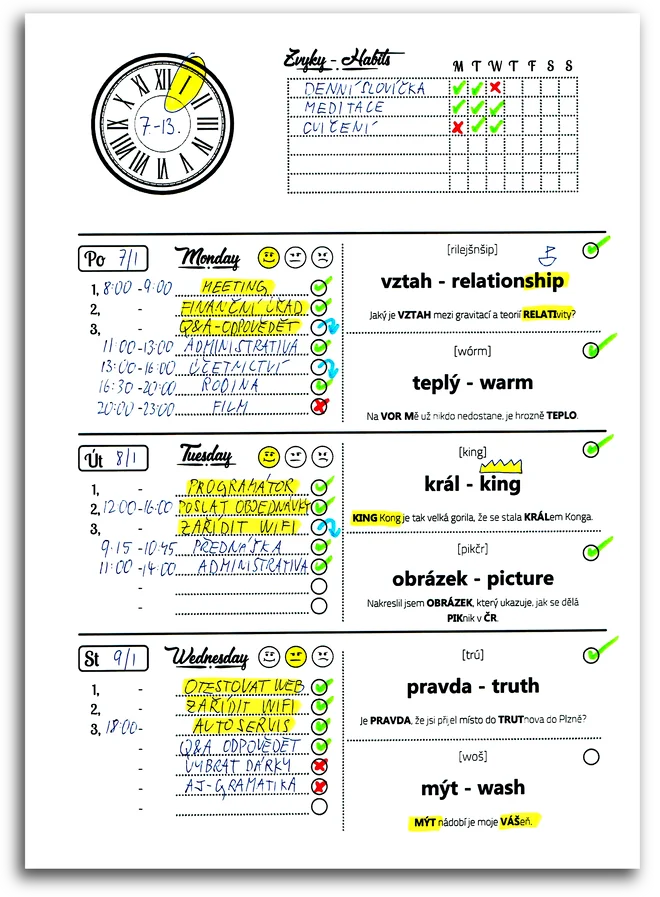 XII I II III IIII V VI VII VIII IX X XI
7-13.
Zvyky - Habits
M T W T F S S
DENNÍ SLOVÍČKA
MEDITACE
CVIČENÍ
Po 7/1 Monday
1, 8:00 - 9:00 MEETING
2, - FINANČNÍ ÚŘAD
3, - Q&A-ODPOVĚDĚT
11:00-13:00 ADMINISTRATIVA
13:00-16:00 ÚČETNICTVÍ
16:30-20:00 RODINA
20:00-23:00 FILM
[rilejšnšip]
vztah - relationship
Jaký je VZTAH mezi gravitací a teorií RELATIvity?
[wórm]
teplý - warm
Na VOR Mě už nikdo nedostane, je hrozně TEPLO.
Út 8/1 Tuesday
1, - PROGRAMÁTOR
2, 12:00-16:00 POSLAT OBJEDNÁVKY
3, - ZAŘÍDIT WIFI
9:15 -10:45 PŘEDNÁŠKA
11:00 -14:00 ADMINISTRATIVA
-
-
[king]
král - king
KING Kong je tak velká gorila, že se stala KRÁLem Konga.
[pikčr]
obrázek - picture
Nakreslil jsem OBRÁZEK, který ukazuje, jak se dělá
PIKnik v ČR.
St 9/1 Wednesday
1, - OTESTOVAT WEB
2, - ZAŘÍDIT WIFI
3, 18:00- AUTOSERVIS
- Q&A ODPOVĚDĚT
- VYBRAT DÁRKY
- AJ-GRAMATIKA
-
[trú]
pravda - truth
Je PRAVDA, že jsi přijel místo do TRUTnova do Plzně?
[woš]
mýt - wash
MÝT nádobí je moje VÁŠeň.